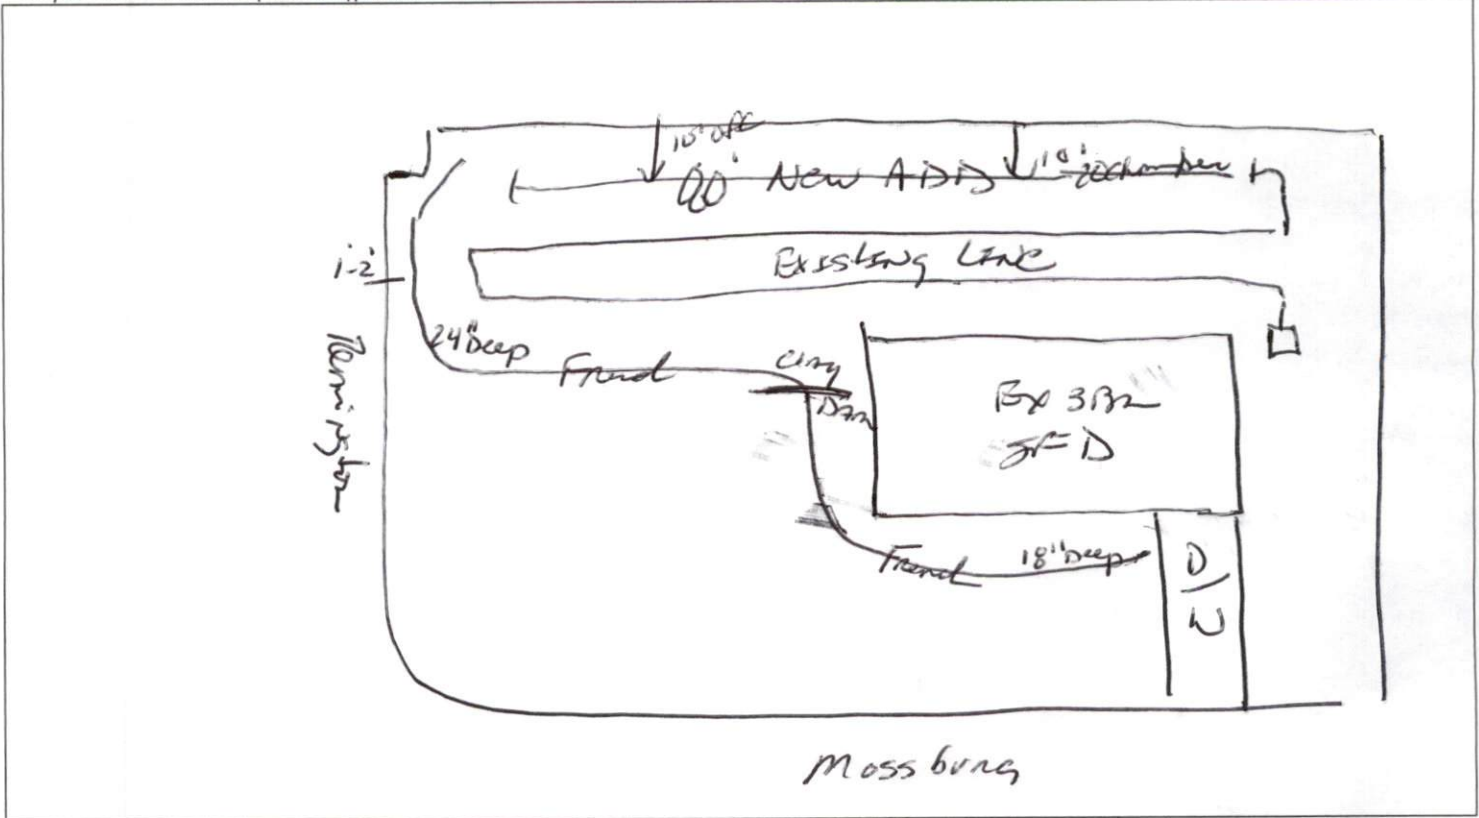 10' off
80' New ADD 10' 20 chamber
Existing Line
1-2'
24" Deep
Frend
Clay
Dam
Ex 3BR
SFD
Remington
Frend
18" Deep
D/W
Mossburg